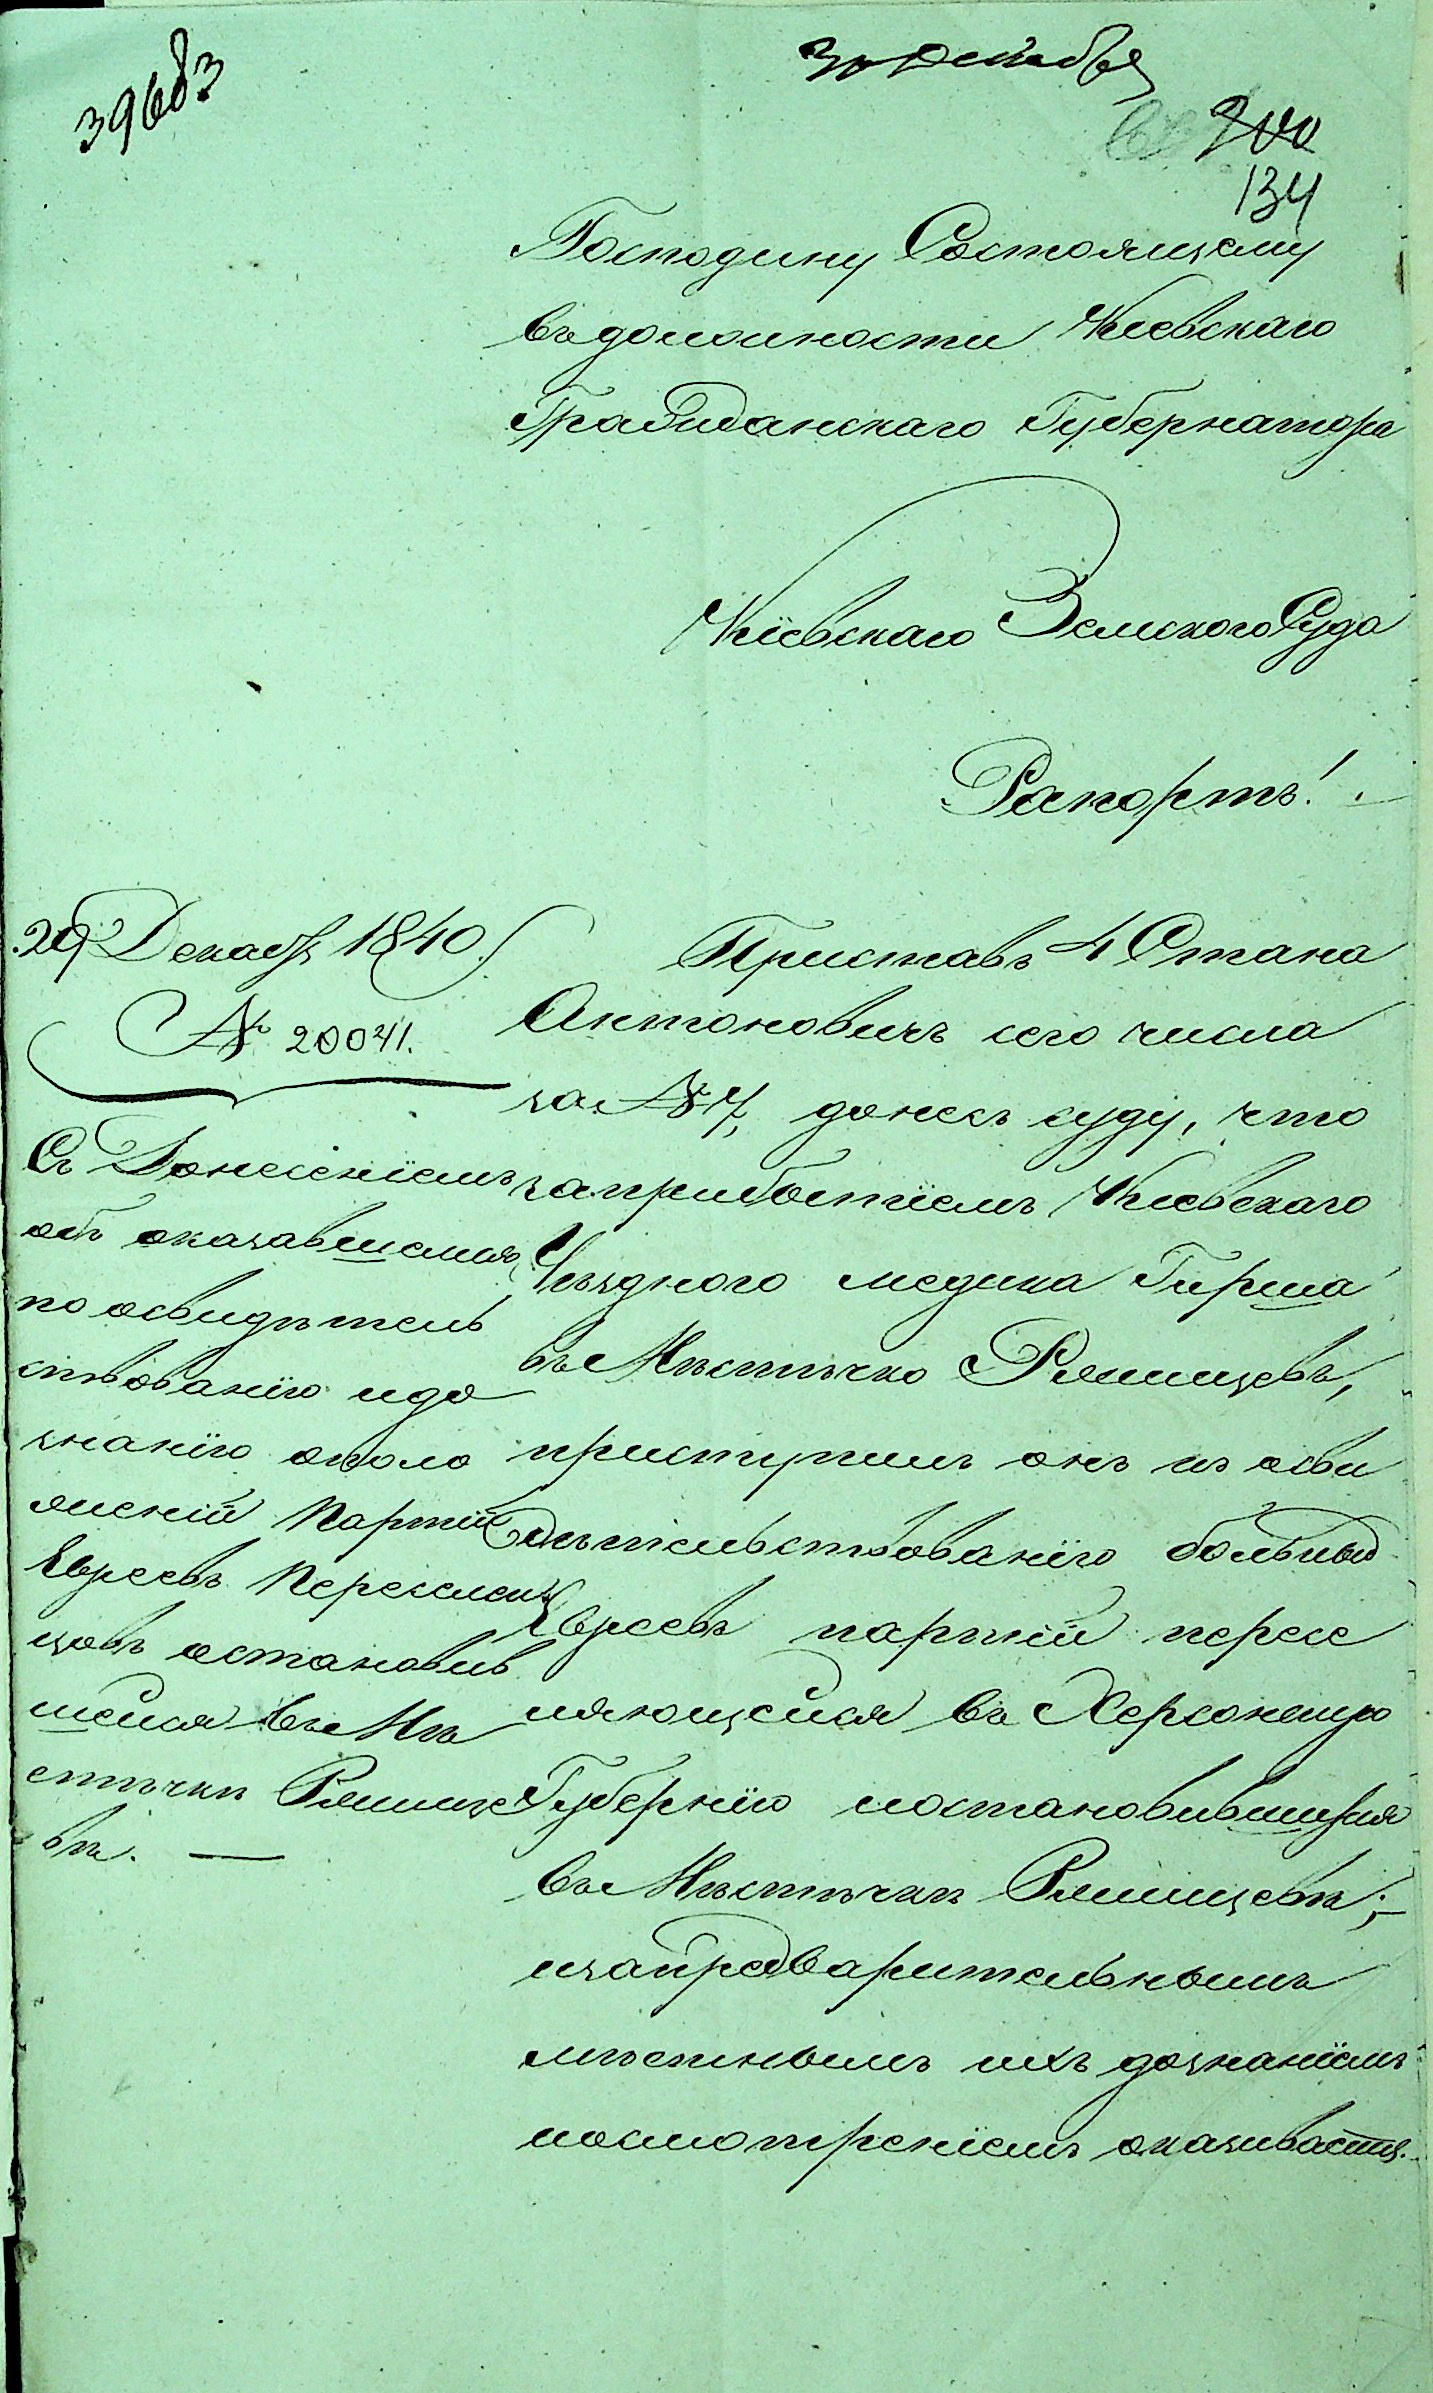 39683
30 декабря
200
134
Господину Состоящему
въ должности Киевскаго
Гражданскаго Губернатора
Кіевскаго Земского Суда
Рапортъ!
29 Декабр 1840.
№ 20041.
Съ Донесеніемъ
объ оказавшемся
по освидѣтель
ствованію и до
знанію около
партіи
Евреевъ Переселен
цовъ остановив
шейся въ Мѣ
стѣчкѣ Ржище
вѣ. —
Приставъ 4 Стана
Антоновичъ сего числа
за № 7, донесъ суду, что
заприбытіемъ Киевскаго
Уѣздного медика Гирша
въ Мѣстѣчко Ржищевъ,
приступилъ онъ къ осви
дѣтельствованію больных
Евреевъ партій пересе
ляющейся въ Херсонскую
Губернію иостановившихся
въ Мѣстѣчкѣ Ржищевѣ;
изапредварительнымъ
мѣстнымъ ихъ дознаніемъ
иосмотреніемъ оказивается.